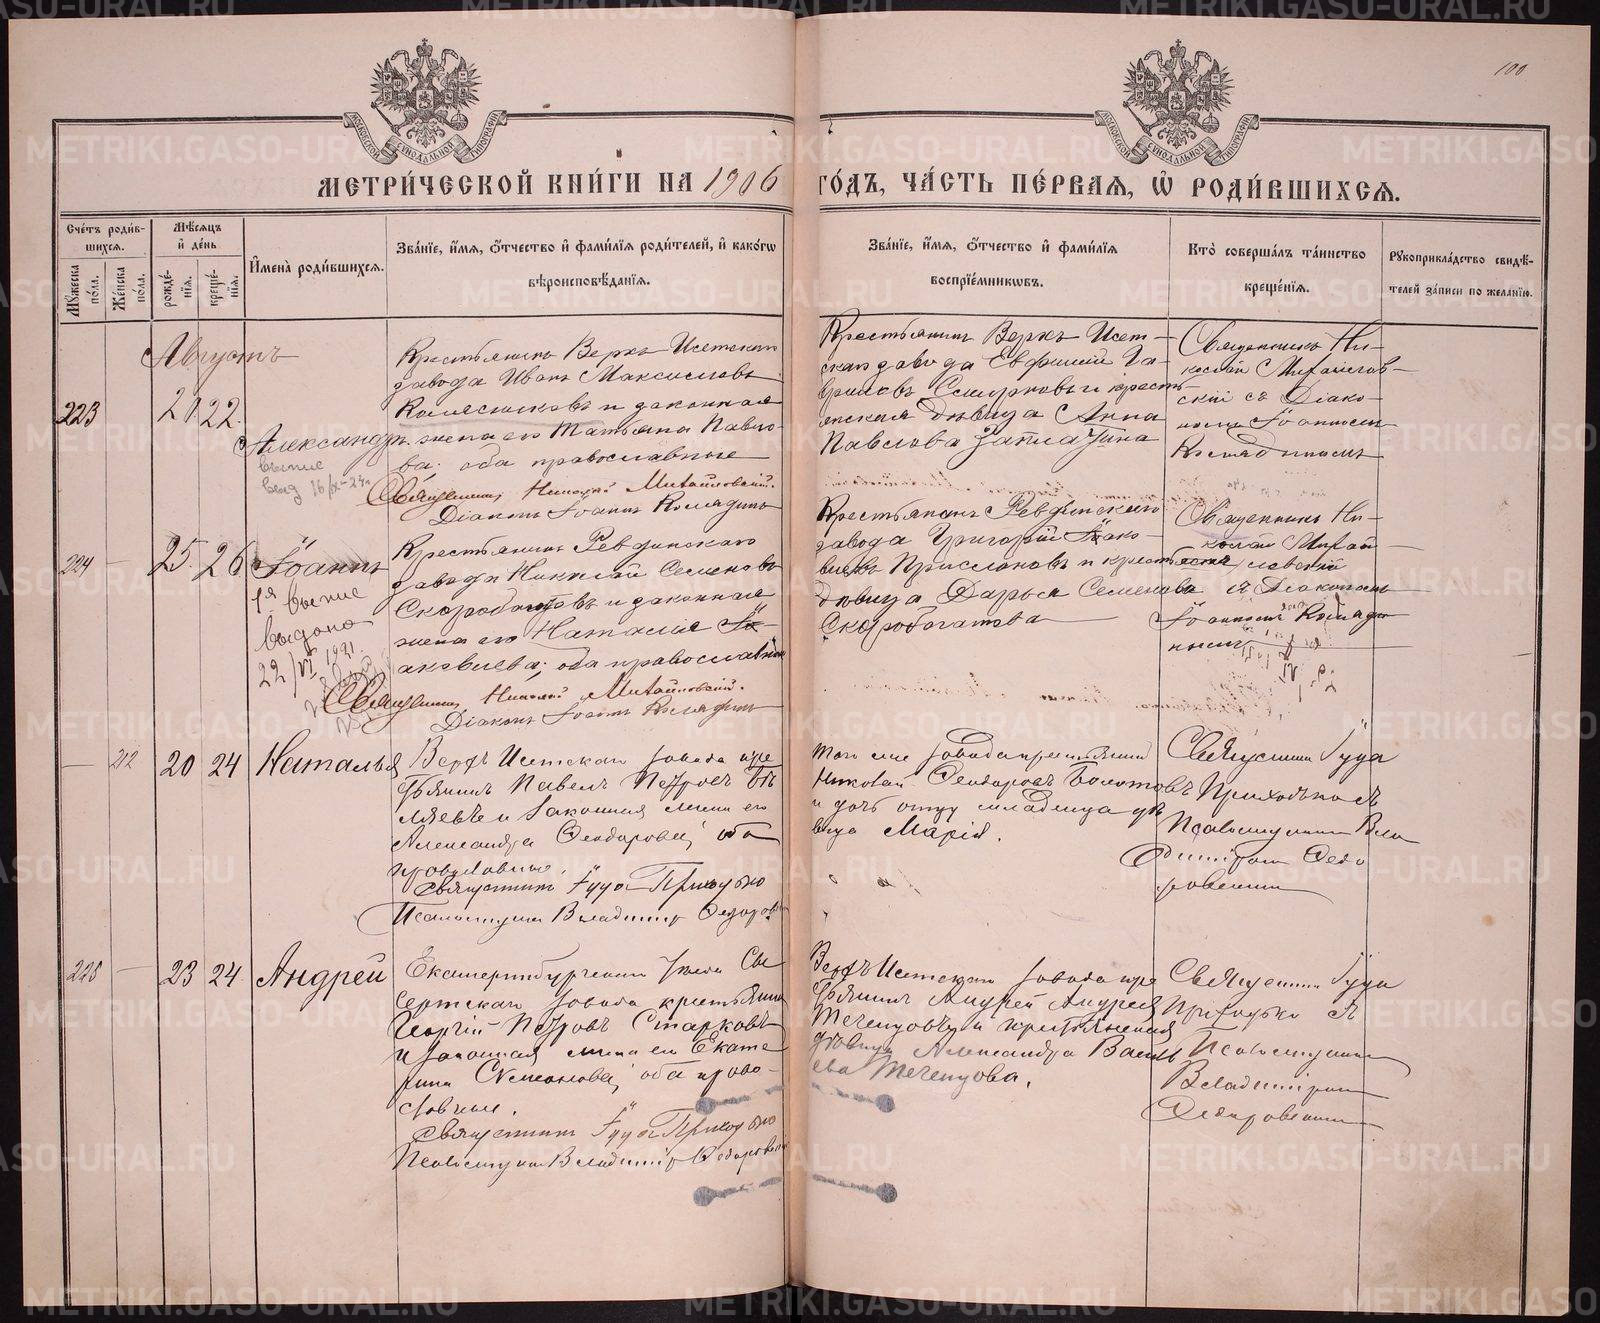 100
МОСКОВСКОЙ СѴНОДАЛЬНОЙ ТИПОГРАФІИ
МОСКОВСКОЙ СѴНОДАЛЬНОЙ ТИПОГРАФІИ
МЕТРИ́ЧЕСКОЙ КНИ́ГИ НА 1906 ГО́ДЪ, ЧА́СТЬ ПЕ́РВАѦ, Ѡ҆ РОДИ́ВШИХСѦ.
Сче́тъ роди́в-
шихсѧ.
Мꙋ́жеска
по́ла.
Же́нска
по́ла.
Мѣ́сѧцъ
и҆ де́нь
рожде́-
нїѧ.
креще́-
нїѧ.
И҆мена̀ роди́вшихсѧ.
Зва́нїе, и҆́мѧ, ѻ҆́тчество и҆ фами́лїѧ роди́телей, и҆ како́гѡ
вѣроисповѣ́данїѧ.
Зва́нїе, и҆́мѧ, ѻ҆́тчество и҆ фами́лїѧ
воспрїе́мникѡвъ.
Кто̀ соверша́лъ та́инство
креще́нїѧ.
Рꙋкоприкла́дство свидѣ́-
телей за́писи по жела́нїю.
Августъ
223
21
22.
Александръ.
выпис
выд 16/IX-24г
Крестьянинъ Верхъ Исетскаго
завода Иванъ Максимовъ
Колясниковъ и законная
жена его Татьяна Павло-
ва; оба православные
Священникъ Николай Михайловскій.
Діаконъ Іоаннъ Колядинъ
Крестьянинъ Верхъ Исет-
скаго завода Евфимій Га-
вриловъ Смирновъ и кресть-
янская дѣвица Анна
Павлова Заплатина
Священникъ Ни-
колай Михайлов-
скій съ Діако-
номъ Іоанномъ
Колядинымъ
224
—
25.
26.
Іоаннъ
1я выпис
выдана
22/VI 1931
Крестьянинъ Ревдинскаго
завода Николай Семеновъ
Скоробогатовъ и законная
жена его Наталия Іо-
аковлева; оба православные
Священникъ Николай Михайловскій.
Діаконъ Іоаннъ Колядинъ
Крестьянинъ Ревдинскаго
завода Григорій Іако-
влевъ Присмановъ и крестьянск
дѣвица Дарья Семенова
Скоробогатова
Священникъ Ни-
колай Михай-
ловскій
съ Діакономъ
Іоанномъ Коляди-
нымъ
—
212
20
24
Наталья
Верхъ Исетскаго завода кре
стьянинъ Павелъ Петровъ Бѣ
ляевъ и законная жена его
Александра Ѳеодорова, оба
православные.
Священникъ Іуда Приходько
Псаломщикъ Владиміръ Ѳедоров
Того же завода крестьянинъ
Николай Ѳеодоровъ Болотовъ
и дочь отцу младенца дѣ
вица Марія.
Священникъ Іуда
Приходько съ
Псаломщикомъ Вла
диміромъ Ѳедо
ровскимъ
225
—
23
24
Андрей
Екатеринбургскаго уѣзда Сы
сертскаго завода крестьянинъ
Георгій Петровъ Старковъ
и законная жена его Екате
рина Симонова, оба право-
славные.
Священникъ Іуда Приходько
Псаломщикъ Владиміръ Ѳедоровскій
Верхъ Исетскаго завода кре
стьянинъ Андрей Андреевъ
Течендовъ и крестьянская
дѣвица Александра Василь
ева Течендова.
Священникъ Іуда
Приходько съ
Псаломщикомъ
Владиміромъ
Ѳедоровскимъ